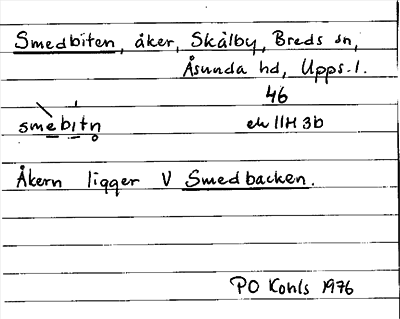 Smedbiten, åker, Skälby, Breds sn,
Åsunda hd, Upps. l.
46
smèbítn̥ ek 11H 3b
Åkern ligger V Smedbacken.
PO Kohls 1976